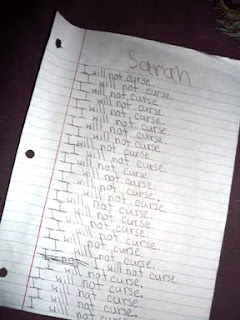 Sarah
I will not curse
I will not curse.
I will not curse.
I will not curse.
I will not curse.
I will not curse.
I will not curse.
I will not curse
I will not curse.
I will not curse.
I will not curse.
I will not curse.
I will not curse.
I will not curse.
I will not curse.
I will not curse.
I will not curse.
I will not curse.
I will not curse
I will not curse.
I will not curse.
I will not curse.
I will not curse.